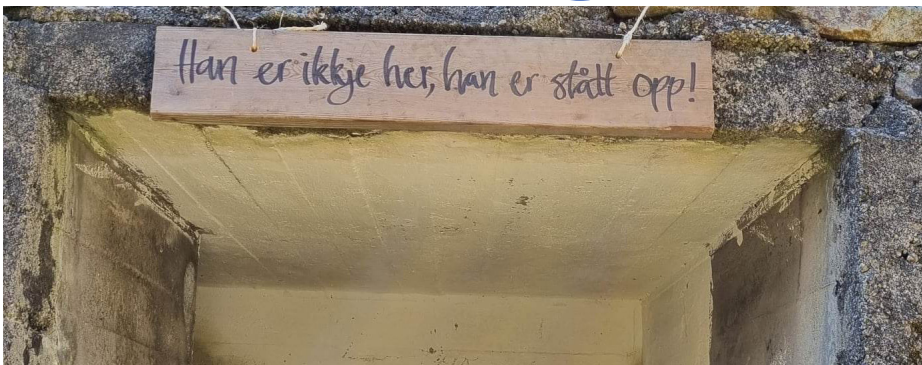 Han er ikkje her, han er stått opp!